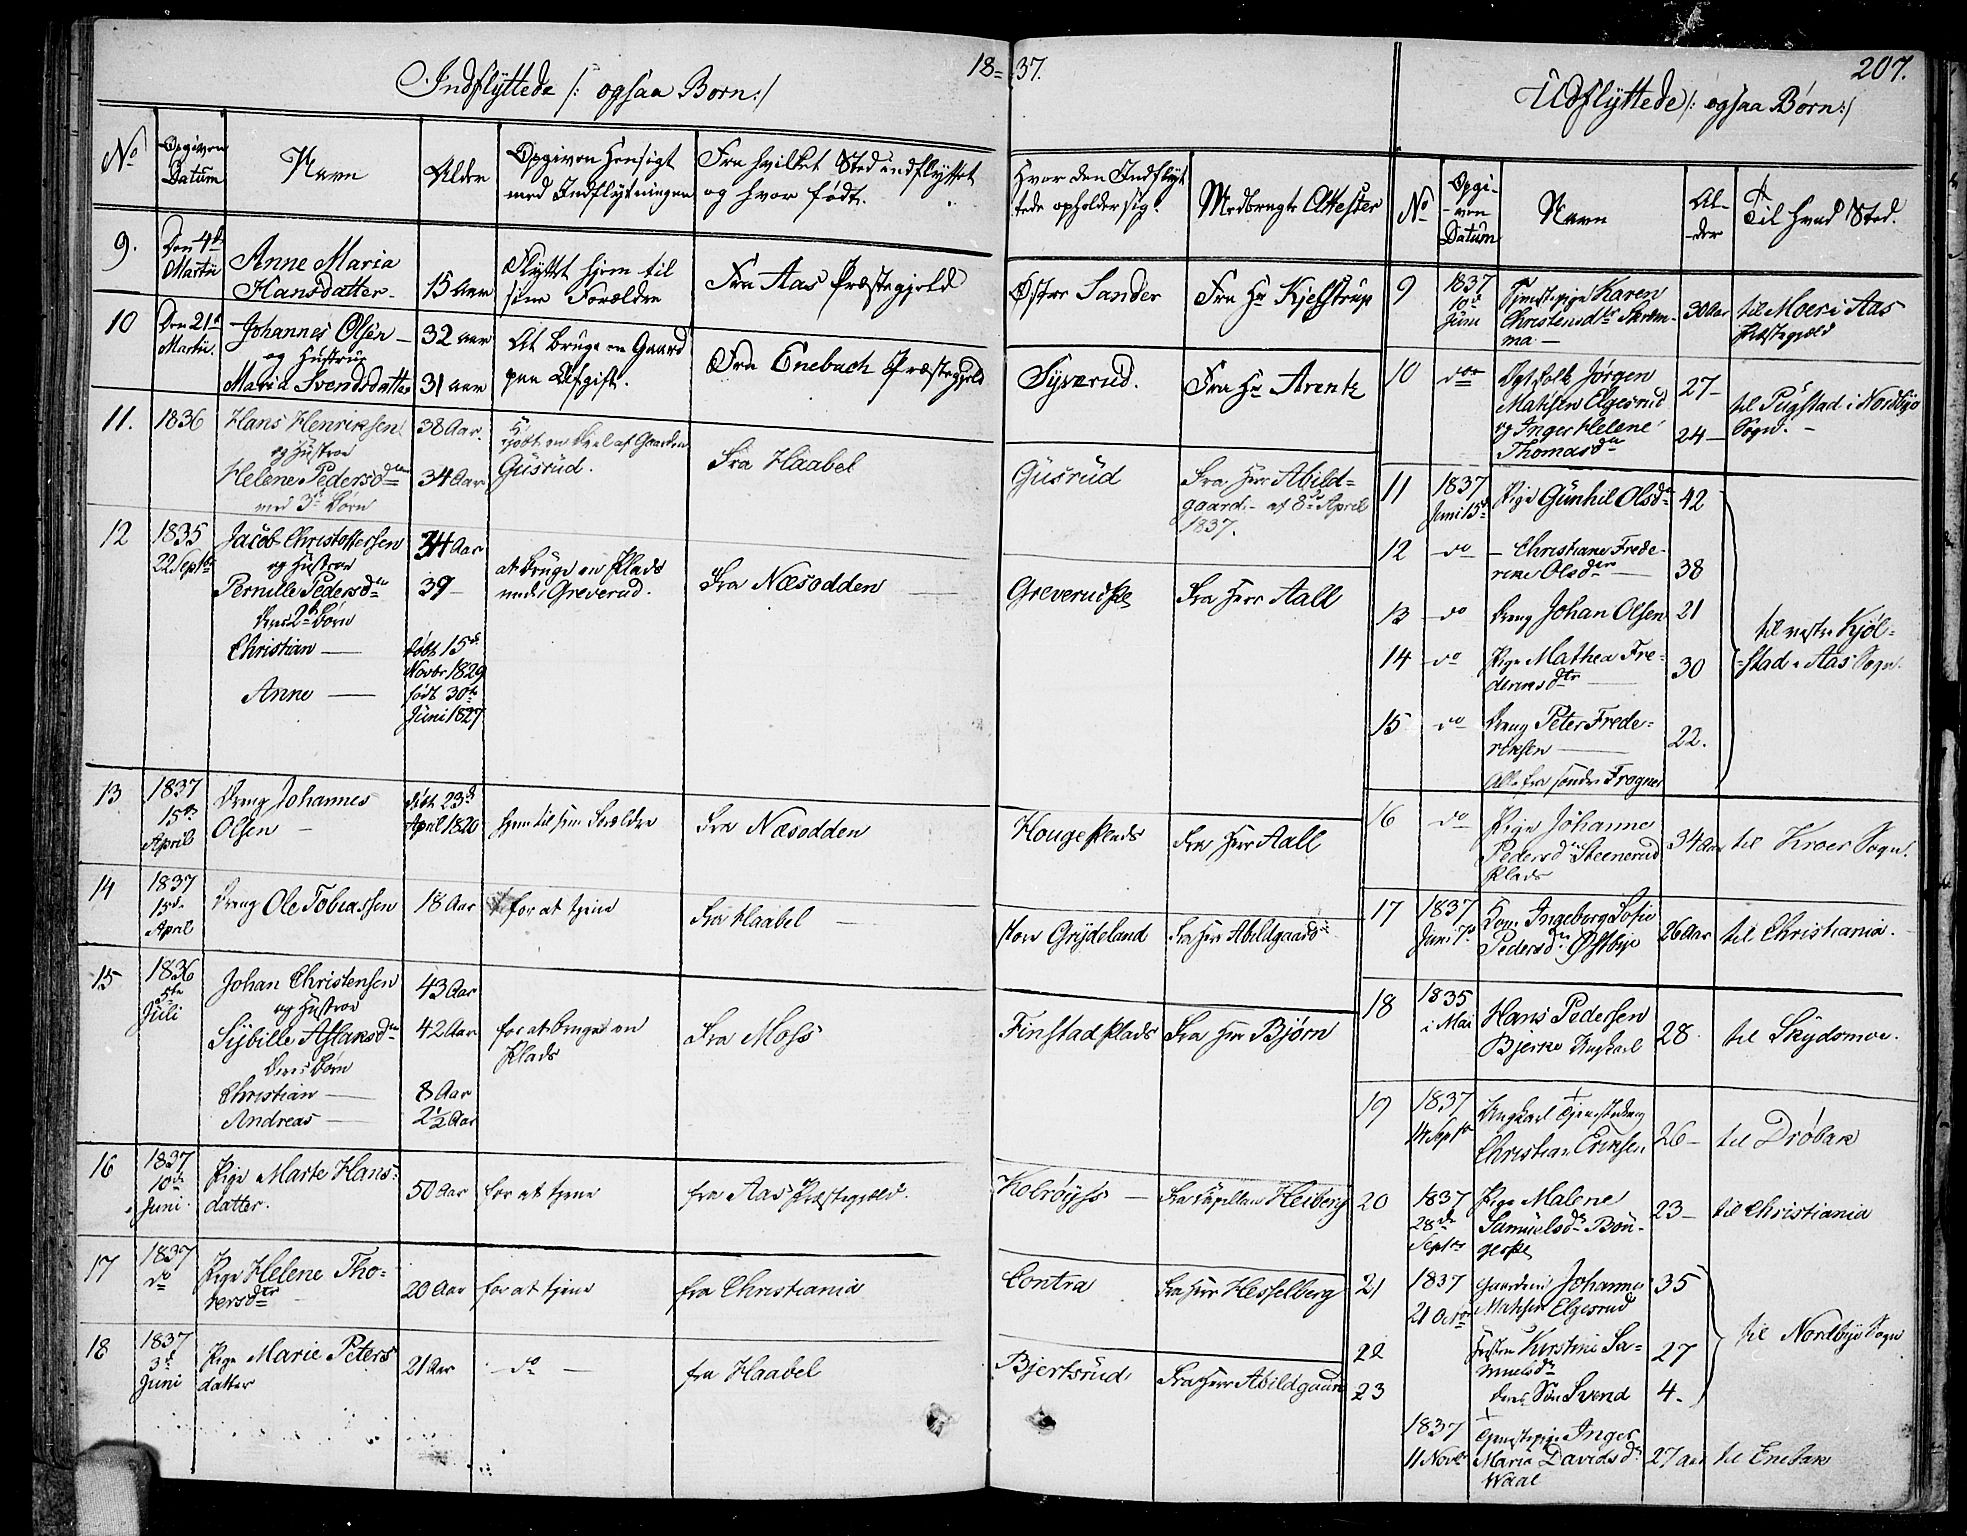 18=37.
207.
Indflyttede /: ogsaa Børn :/
No
Opgiven Datum
Navn
Alder
Opgiven Hensigt med Indflytningen
Fra hvilket Sted indflyttet og hvor født.
Hvor den Indflyttede opholder sig.
Medbragte Attester
9.
Den 4de Martii
Anne Maria
Hansdatter
15 Aar
Flyttet hjem til
sine Forældre
Fra Aas Præstegjeld
Østre Sander
Fra Hr Kjelstrup
10
Den 21de Martii.
Johannes Olsen
og Hustrue
Maria Svendsdatter
32 aar
31 aar
At bruge en Gaard
paa Afgift.
Fra Enebach Præstegjeld
Syverud.
Fra Hr Arentz
11.
1836
Hans Henriksen
og Hustroe
Helene Pedersdr
med 3de Børn
38 Aar.
34 Aar
Kjøbt en Deel af Gaarden
Gusrud.
Fra Haabel
Gusrud
Fra Herr Abild=
gaard. af 8de April
1837.
12
1835
22 Septbr
Jacob Christoffersen
og Hustroe
Pernille Pedersdr
Deres 2de Børn
Christian
Anne
34 Aar
39
født 15de
Novbr 1829
født 30te
Juni 1827
at bruge en Plads
under Greverud.
Fra Næsodden
Greverudpl
Fra Herr Aall
13
1837
15de
April
Dreng Johannes
Olsen
født 23de
April 1820
hjem til sine Forældre
Fra Næsodden
Hougeplads
Fra Herr Aall
14
1837
15de
April
Dreng Ole Tobiassen
18 Aar
for at tjene
Fra Haabel
store Grydeland
Fra Herr Abildgaard
15
1836
5te
Juli
Johan Christensen
og Hustroe
Sybille Aslaksdr
Deres Børn
Christian
Andreas
43 Aar
42 Aar
8 Aar
2½ Aar
for at bruge en
Plads
Fra Moss
Finstadplads
Fra Herr Bjørn
16
1837
10de
Juni
Pige Marte Hans=
datter.
50 Aar
for at tjene
fra Aas Præstegjeld.
Kolrøiyss
Fra Kapellan Heiberg
17
1837
do
Pige Helene Tho=
kersdtr
20 Aar
for at tjene
fra Christiania
Contra
Fra Herr Hesselberg
18
1837
3de
Juni
Pige Marie Peters
datter
21 Aar
do
fra Haabel
Bjertsrud
Fra Herr Abildgaard
Udflyttede /: ogsaa Børn :/
No
Opgiven Datum
Navn
Alder
Til hvad Sted.
9
1837
10de
Juni
Tjenestepige Karen
Christensdtr Skrem=
ma
30 Aar
til Moer i Aas
Præstegjeld
10
do
Ægtefolk Jørgen
Mathisen Elgesrud
og Inger Helene
Thomasdr
27
24
til Pugstad i Nordbye
Sogn.
11
1837
Juni 15de
Pige Gunhil Olsdr
42
12
do
Christiane Frede=
rikke Olsdtr
38
13
do
Dreng Johan Olsen
21
14
do
Pige Mathea Fre=
deriksdtr
30
15
do
Dreng Peter Frede=
riksen
22.
Alle fra søndre Frogner
til vestre Kjøl=
stad i Aas Sogn.
16
do
Pige Johanne
Pedersdr Steenerud
Plads
34 Aar
til Kroer Sogn.
17
1837
Juni 7de
Ingeborg Sofie
Pedersdr Østbye
26 Aar
til Christiania.
18
1835
i Mai
Hans Pedersen
Bjerke Ungkarl
28
til Skydsmoe.
19
1837
14 Septbr
Ungkarl Tjenestedreng
Christian Eriksen
26
til Drøbak
20
1837
28de
Septbr
Pige Malene
Samuelsdr Bøn=
gerpl
23
til Christiania
21
1837
21 Octbr
Gaardmd Johannes
Mathisen Elgesrud
35
22
Hustru Kirstine Sa=
muelsdr
27
23
deres Søn Svend
4
til Nordbye Sogn
1837
11 Novbr
Tjenestepige Inger
Maria Davidsdr
Waal
27 Aar
til Enebak